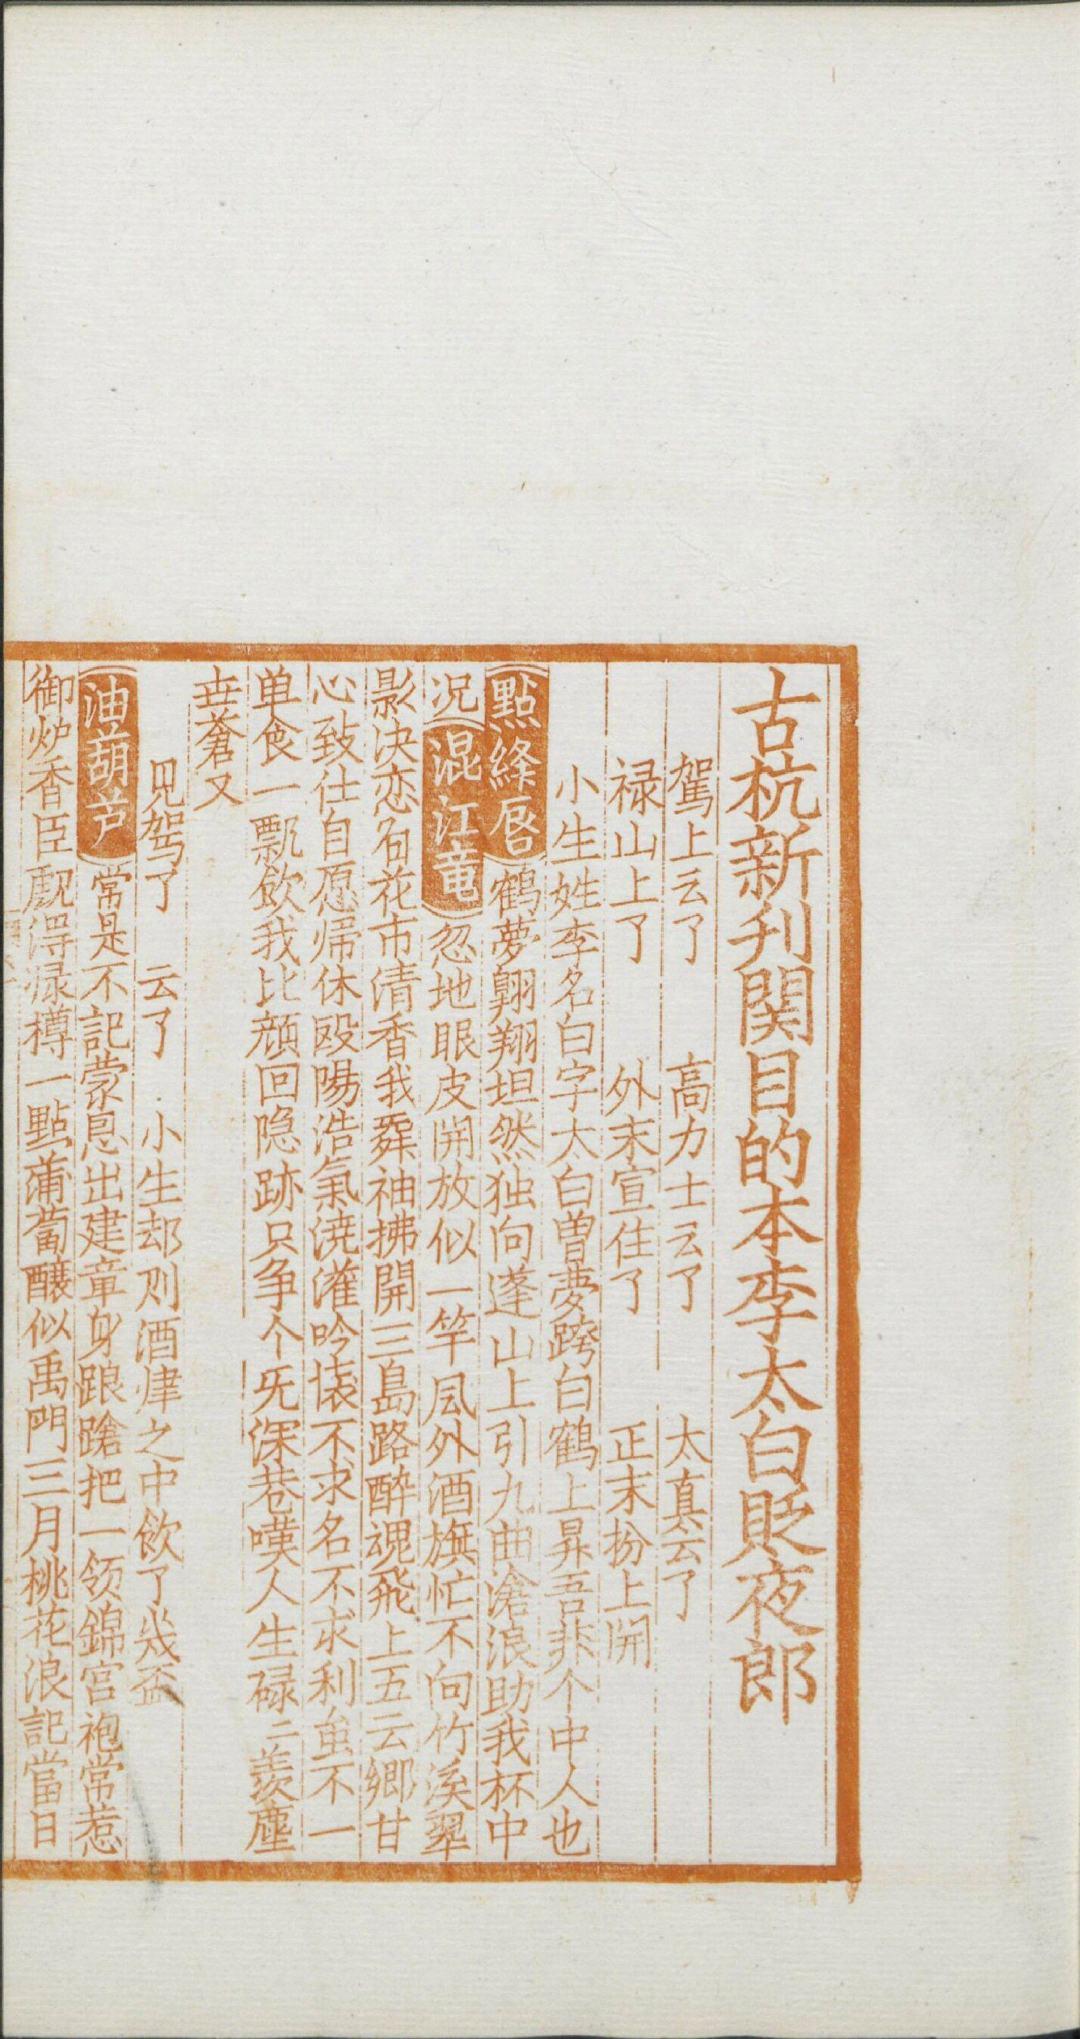 古杭新刊関目的本李太白貶夜郎
駕上云了　高力士云了　太真云了
禄山上了　外末宣住了　正末扮上開
小生姓李名白字太白曽夢跨白鶴上昇吾非个中人也
點絳唇鶴夢翺翔坦然独向蓬山上引九曲滄浪助我杯中
况混江竜忽地眼皮開放似一竿风外酒旗忙不向竹溪翠
影决恋名花市清香我舞袖拂開三島路醉魂飛上五云郷甘
心致仕自愿帰休殴陽浩氣澆灌吟懐不求名不求利虽不一
单食一瓢飲我比顔回隐跡只争个无深巷嘆人生碌二羨塵
世蒼又
见驾了　云了　小生却则酒肆之中飲了幾盃
油葫芦常是不記蒙恩出建章身踉蹌把一领錦宫袍常惹
御炉香臣覷得渌樽一點蒲萄釀似禹門三月桃花浪記當日